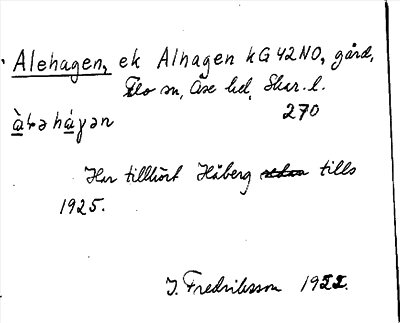 Alehagen, ek Alhagen kG 42NO, gård,
Flo sn, Åse hd, Skar. l.
270
à̱ɬəhá̱gən
Har tillhört Håberg ~~sedan~~ tills
1925.
I. Fredriksson 1952.